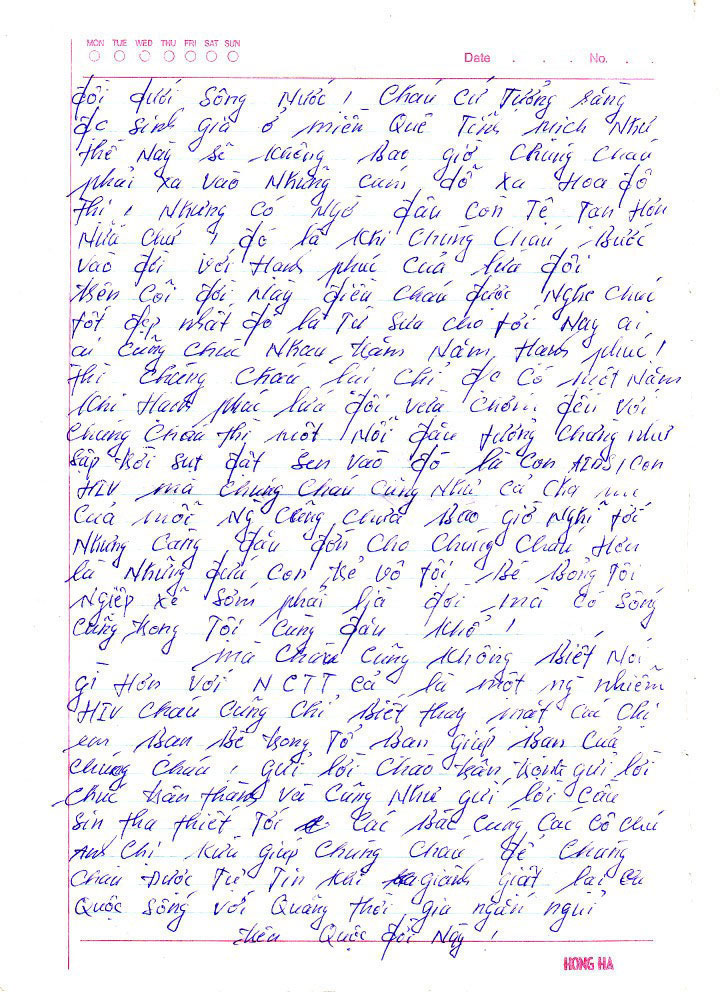 MON TUE WED THU FRI SAT SUN
Date . . . No. . .
đôi dưới Sông Nước ! Cháu Cứ Tưởng rằng
đc sinh gia ở miền Quê Tĩnh mich Như
thế Này sẽ không Bao giờ Chúng Cháu
phải xa vào Những cám dỗ xa Hoa đô
thi ! Nhưng có Ngờ đâu Còn Tệ Tan Hơn
Nữa chứ ! đó là khi Chúng Cháu Bước
vào đời với Hanh phúc Của lứa đôi
trên Cõi đời Này điều cháu được Nghe chúc
tốt đẹp nhất đó là Từ Sưa cho tới Nay ai
ai cũng chúc Nhau trăm Năm Hanh phúc !
thì Chúng Cháu lai chỉ đc Có một Năm
khi Hanh phúc lứa đôi vừa Chớm đến với
Chúng Cháu thì một Nỗi đau tưởng chừng như
sâp trời sut đất sen vào đó là Con AIDS, Con
HIV mà Chúng Cháu Cũng Như cả cha mẹ
Của mỗi Ng Cũng chưa Bao giờ Nghĩ tới
Nhưng Càng đau đớn Cho Chúng Cháu Hơn
là Những đứa Con trẻ vô tôi Bé Bỏng Tôi
Ngiêp xẽ Sớm phải lìa đời mà có Sống
Cũng trong Tôi Cùng đau khổ !
mà Cháu Cũng không Biết Nói
gì Hơn với NCTT Cả là một ng nhiễm
HIV Cháu Cũng Chỉ Biết thay mặt Các Chị
em Ban Bè trong Tổ Ban giúp Ban Của
Chúng Cháu ! Gửi lời Chào trân trong gửi lời
Chúc trân thành và Cũng Như gửi lời Cầu
Sin tha thiết Tới Các Bác Cùng Các Cô chú
Anh Chi Kứu giúp Chúng Cháu để Chúng
Cháu Được Tự Tin khi giành giât lai
Quộc sống với Quãng thời gia ngắn ngủi
trên Quộc đời Này !
HONG HA